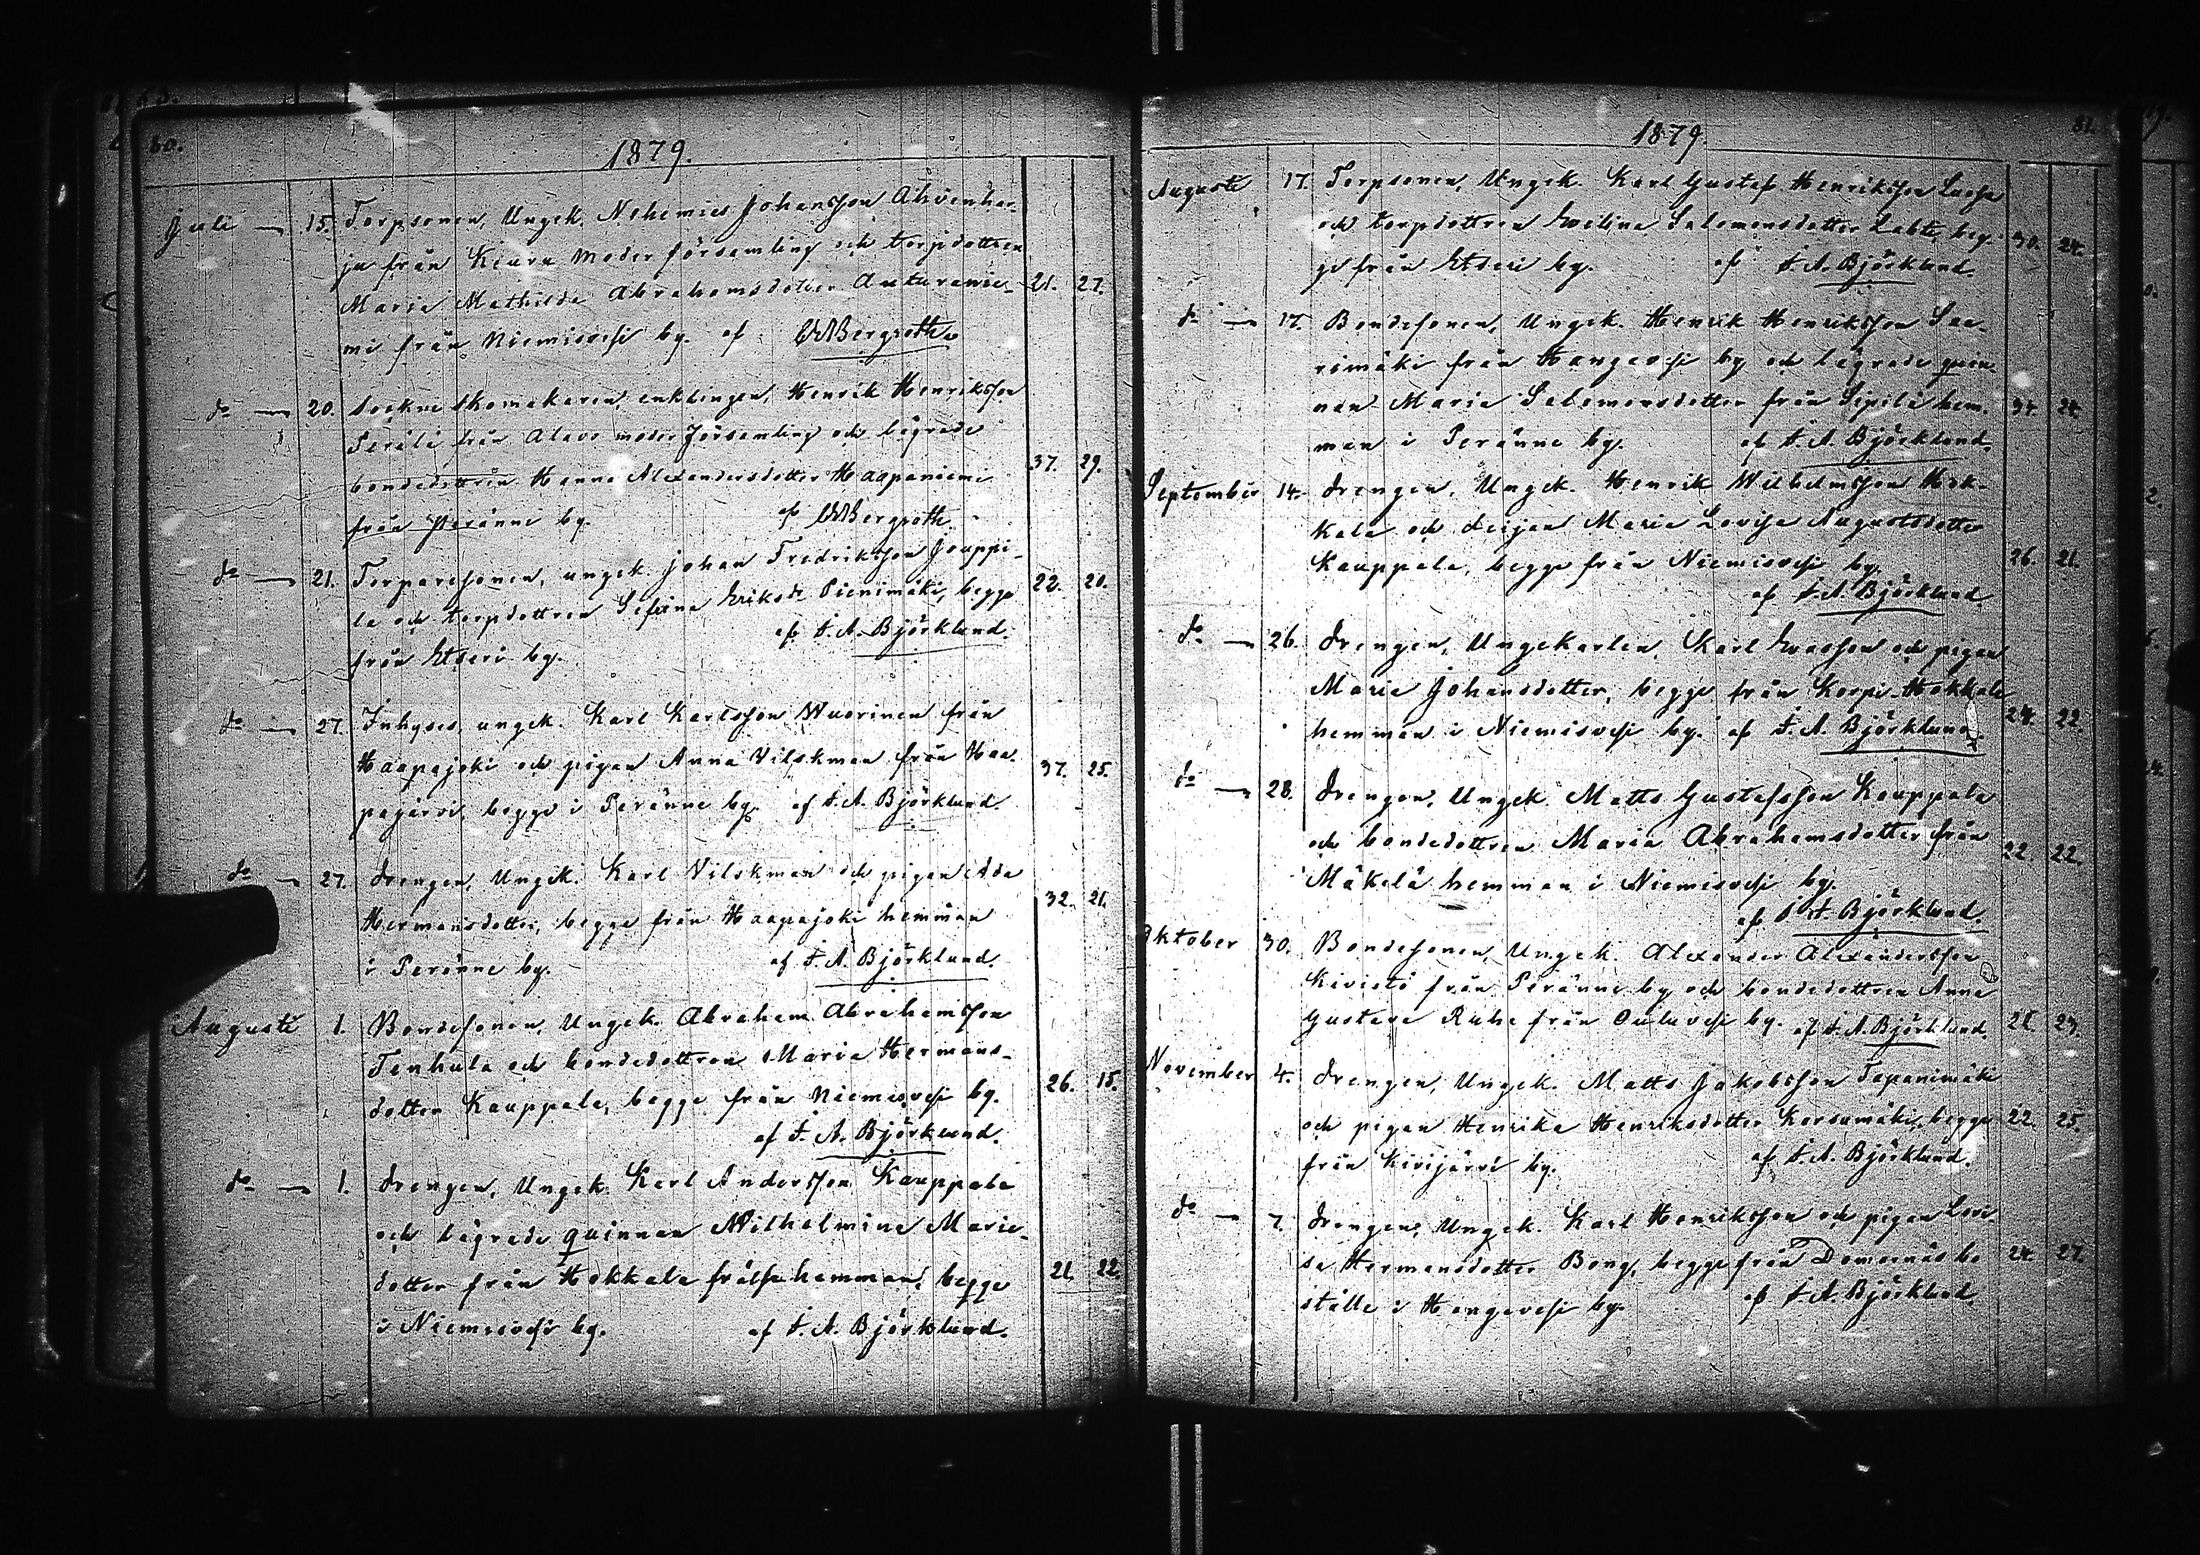 60.
1879.
Juli — 15. Torpsonen, Ungk. Nehemias Johansson Ahvenhar-
ju från Keuru moder församling och torpdottren
Maria Mathilda Abrahamsdotter Auturanie- 21. 27.
mi från Niemisvesi by. af Bergroth
do — 20. Sockne skomakaren, enklingen, Henrik Henriksson
Perälä från Alavo moder församling och lägrade
bondedottren Hanna Alexandersdotter Haapaniemi 37. 29.
från Peränne by. af Bergroth
do — 21. Torparesonen, ungk. Johan Fredriksson Jouppi-
la och torpdottren Sefrina Eriksdr Pienimäki, begge 22. 20.
från Etseri by. af F. A. Björklund.
do — 27. Inhyses ungk. Karl Karlsson Wuorinen från
Haapajoki och pigan Anna Vilskman från Haa- 37. 25.
pajärvi, begge i Peränne by. af F. A. Björklund.
do — 27. Drengen, Ungk. Karl Vilskman och pigan Ada
Hermansdotter, begge från Haapajoki hemman 32. 21.
i Peränne by. af F. A. Björklund.
Augusti 1. Bondesonen, Ungk. Abraham Abrahamsson
Tenhula och bondedottren Maria Hermans-
dotter Kauppala, begge från Niemisvesi by. 26. 15.
af F. A. Björklund.
do — 1. Drengen, Ungk. Karl Andersson Kauppala
och lägrade quinnan Wilhelmina Maria-
dotter från Hokkala frälse hemman, begge 21. 22.
i Niemisvesi by. af F. A. Björklund.
1879.
81.
Augusti 17. Torpsonen, Ungk. Karl Gustaf Henriksson
och torpdottren Evelina Salomonsdotter Lahti, beg- 30. 24.
ge från Etseri by. af F. A. Björklund
do — 17. Bondesonen, Ungk. Henrik Henriksson Saa-
rimäki från Hangavesi by och lägrade quin-
nan Maria Salomonsdotter från Sipilä hem- 34. 24.
man i Peränne by. af F. A. Björklund.
September 14. Drengen, Ungk. Henrik Wilhelmsson Hok-
kala och Maria Lovisa Augustsdotter
Kauppala, begge från Niemisvesi by. 26. 21.
af F. A. Björklund.
do — 26. Drengen, Ungekarlen, Karl Erasson och pigan
Maria Johansdotter, begge från Korpi-Hokkala
hemman i Niemisvesi by. af F. A. Björklund 24. 22.
do — 28. Drengen, Ungk. Matts Gustafsson Kauppala
och bondedottren Maria Abrahamsdotter från
Mäkelä hemman i Niemisvesi by. 22. 22.
af F. A. Björklund.
Oktober 30. Bondesonen, Ungk. Alexander Alexandersson
Kivistö från Peränne by och bondedottren Anna
Gustava Ruha från Ouluvesi by. af F. A. Björklund. 21. 23.
November 4. Drengen, Ungk. Matts Jakobsson Tapanimäki
och pigan Henrika Henriksdotter Korsumäki, begge 22. 25.
från Kivijärvi by. af F. A. Björklund.
do — 7. Drengen, Ungk. Karl Henriksson och pigan Lovi-
sa Hermansdotter Bong, begge från Domarnäs bo- 24. 27.
ställe i Hangavesi by. af F. A. Björklund.